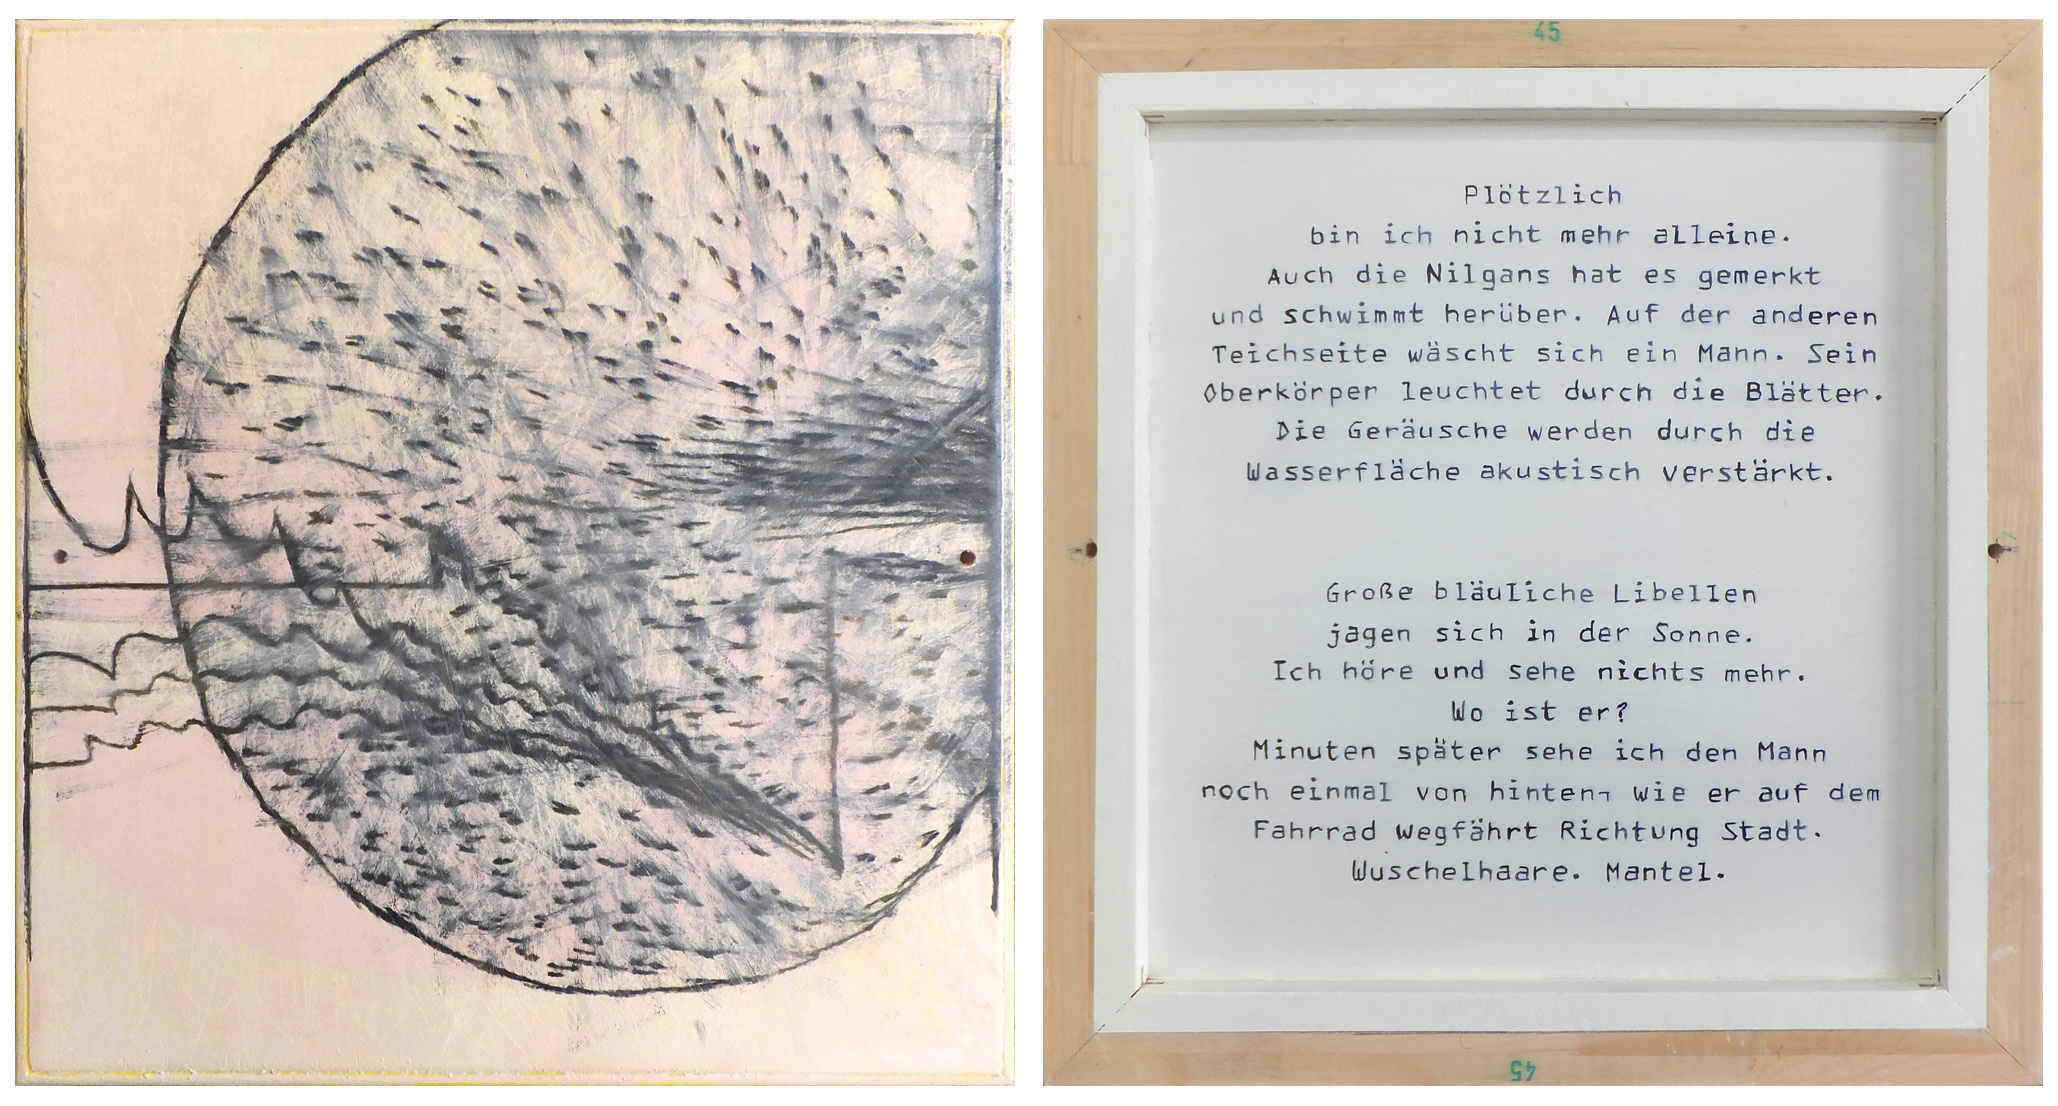 45
Plötzlich
bin ich nicht mehr alleine.
Auch die Nilgans hat es gemerkt
und schwimmt herüber. Auf der anderen
Teichseite wäscht sich ein Mann. Sein
Oberkörper leuchtet durch die Blätter.
Die Geräusche werden durch die
Wasserfläche akustisch verstärkt.
Große bläuliche Libellen
jagen sich in der Sonne.
Ich höre und sehe nichts mehr.
Wo ist er?
Minuten später sehe ich den Mann
noch einmal von hinten, wie er auf dem
Fahrrad wegfährt Richtung Stadt.
Wuschelhaare. Mantel.
45